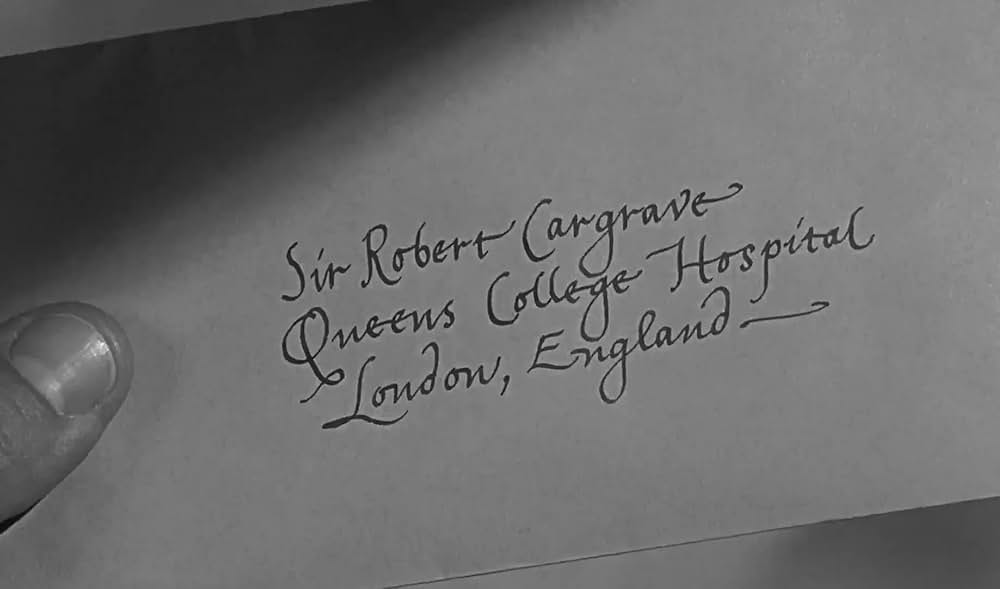 Sir Robert Cargrave
Queens College Hospital
London, England